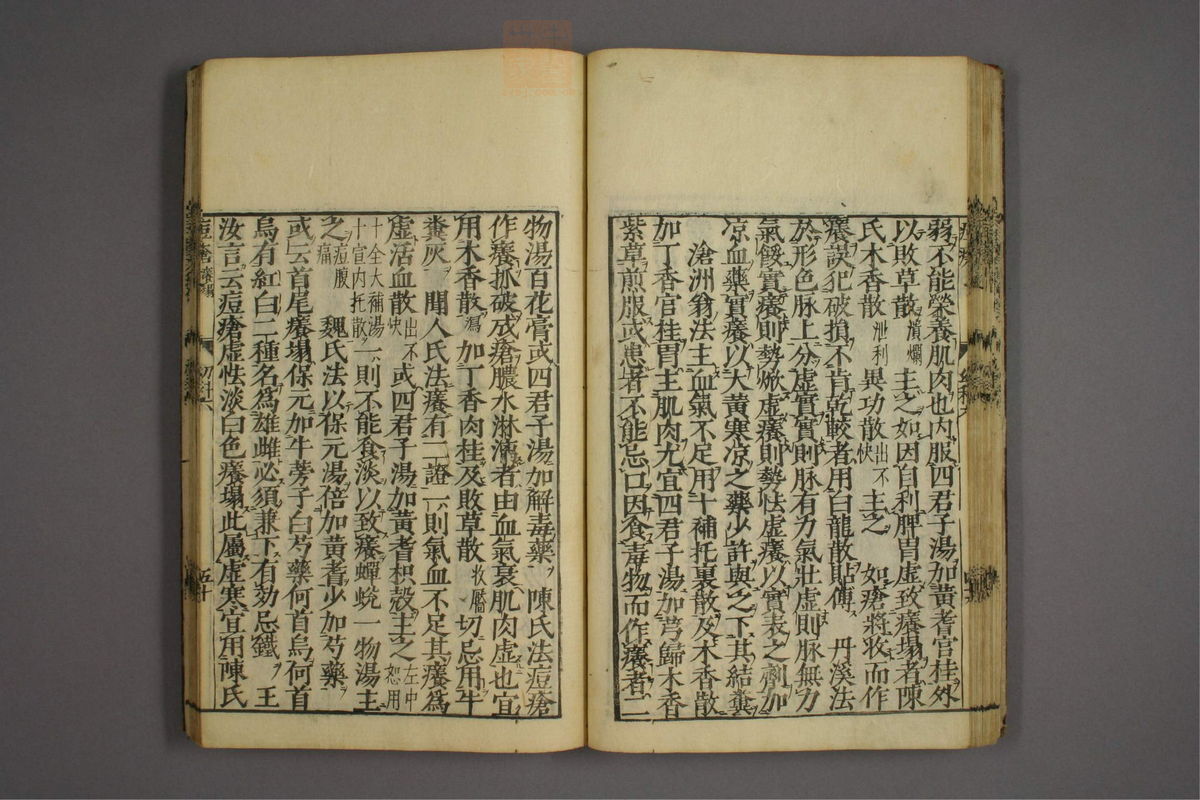 弱不能榮養肌肉也内服四君子湯加黃耆官桂外
以敗草散潰爛主之如因自利脾胃虛致癢塌者陳
氏木香散泄利異功散出不快主之　如瘡將收而作
癢誤犯破損不肯乾較者用白龍散貼傅　丹溪法
於形色脉上分虛實實則脉有力氣壯虛則脉無力
氣餒實癢則勢掀虛癢則勢怯虛癢以實表之劑加
凉血藥實癢以大黃寒凉之藥少許與之下其結糞
滄洲翁法主血氣不足用十補托裏散及木香散
加丁香官桂胃主肌肉尤宜四君子湯加芎歸木香
紫草煎服或患者不能忌口因食毒物而作癢者二
物湯百花膏或四君子湯加解毒藥　陳氏法痘瘡
作癢抓破成瘡膿水淋漓者由血氣衰肌肉虛也宜
用木香散瀉加丁香肉桂及敗草散收靨切忌用牛
糞灰　聞人氏法癢有二證一則氣血不足其癢爲
虛活血散出不快或四君子湯加黃耆枳殼主之左中恕用
十全大補湯十宣内托散一則不能食淡以致癢蟬蛻一物湯主
之痘腹痛　魏氏法以保元湯倍加黃耆少加芍藥
或云首尾癢塌保元加牛蒡子白芍藥何首烏何首
烏有紅白二種名爲雄雌必須兼下有効忌鐵　王
汝言云痘瘡虛怯淡白色癢塌此屬虛寒宜用陳氏
痘瘡癢塌
幼科六
五十